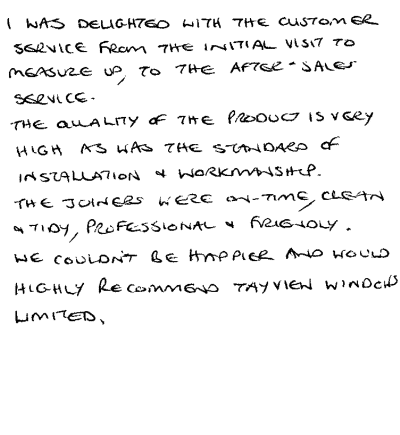 I WAS DELIGHTED WITH THE CUSTOMER
SERVICE FROM THE INITIAL VISIT TO
MEASURE UP, TO THE AFTER-SALES
SERVICE.
THE QUALITY OF THE PRODUCT IS VERY
HIGH AS WAS THE STANDARD OF
INSTALLATION & WORKMANSHIP.
THE JOINERS WERE ON-TIME, CLEAN
& TIDY, PROFESSIONAL & FRIENDLY.
WE COULDN'T BE HAPPIER AND WOULD
HIGHLY RECOMMEND TAYVIEW WINDOWS
LIMITED.